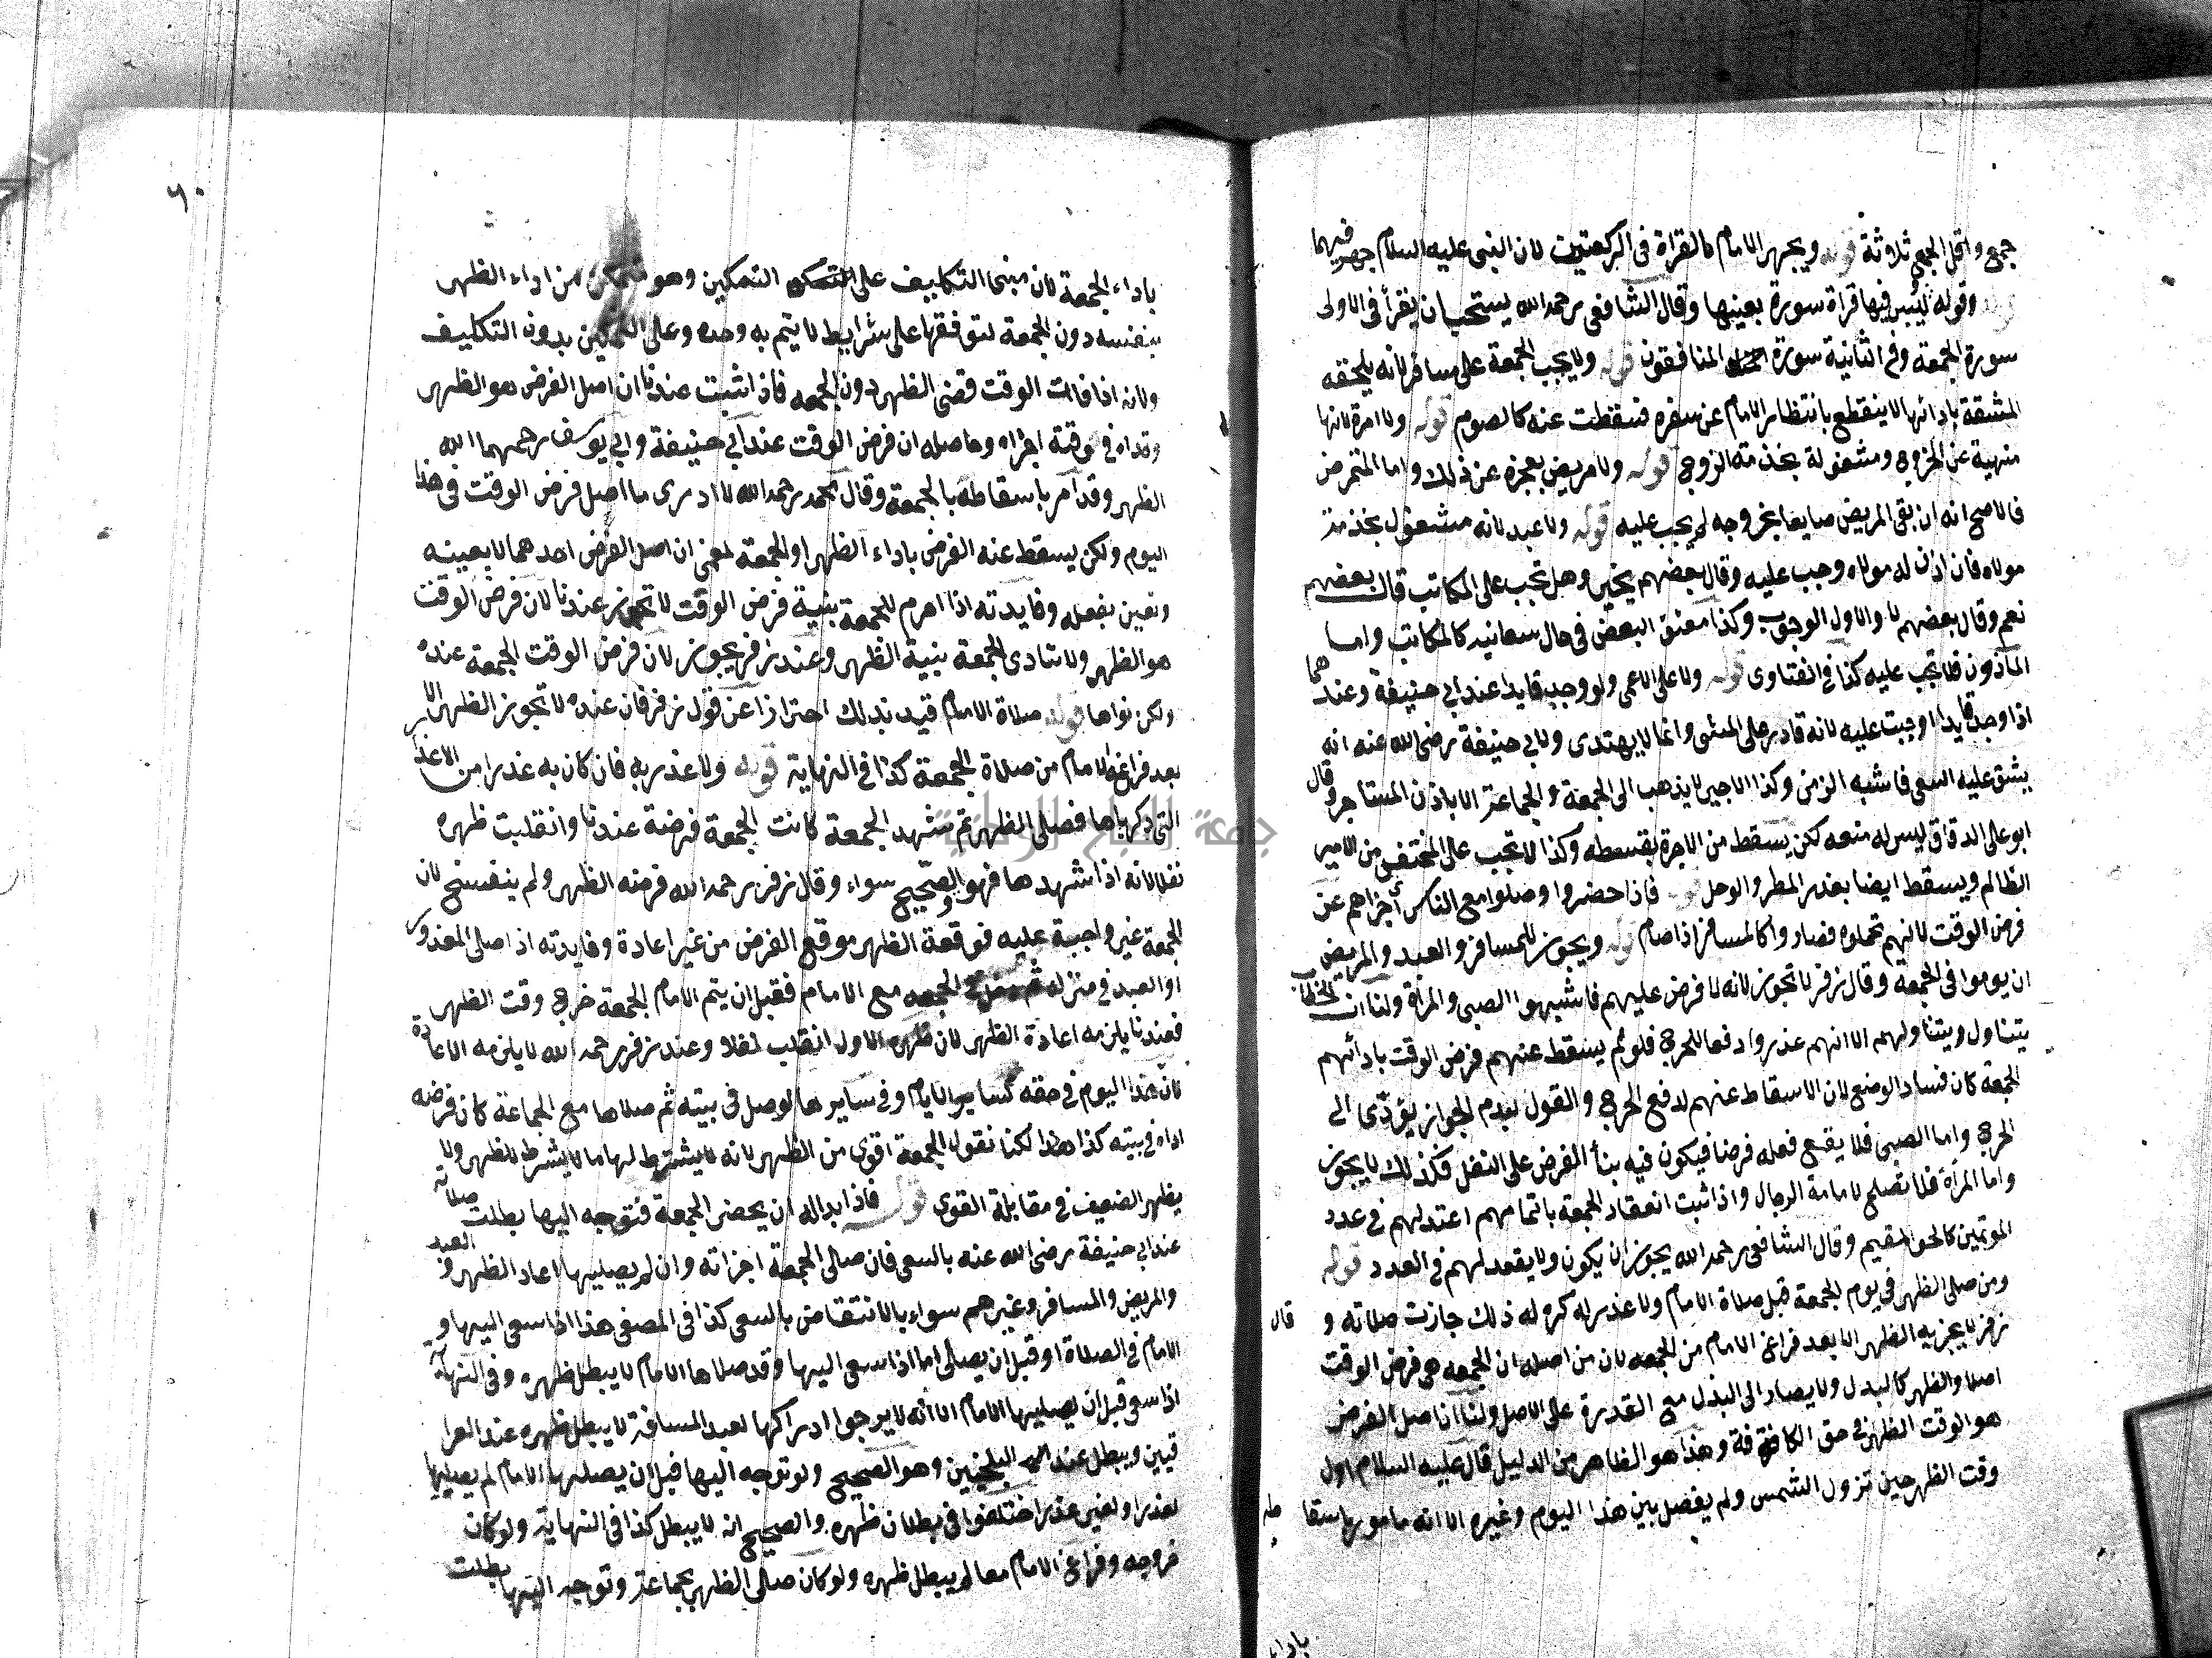 جمع واقل الجمع ثلاثة قوله ويجهر الامام بالقراة في الركعتين لان النبي عليه السلام جهر فيهما
وقوله ليس فيها قراة سورة بعينها وقال الشافعي رحمه الله يستحب ان يقرأ في الاولى
سورة الجمعة وفي الثانية سورة المنافقون قوله ولا يجب الجمعة على مسافر لانه يلحقه
المشقة بادائها لا ينقطع بانتظار الامام عن سفره فسقطت عنه كالصوم قوله ولا امرة لانها
منهية عن الخروج ومشغولة بخذمة الزوج قوله ولا مريض بعجزه عن ذلك واما المتمرض
فالاصح انه ان بقي المريض ضايعا بخروجه لم يجب عليه قوله ولا عبد لانه مشغول بخذمة
مولاه فان اذن له مولاه وجب عليه وقال بعضهم يخير وهل تجب على المكاتب قال بعضهم
نعم وقال بعضهم لا والاول الوجوب وكذا معتق البعض في حال سعايته كالمكاتب واما
المأذون فلا تجب عليه كذا في الفتاوى قوله ولا على الاعمى ولو وجد قايدا عند ابي حنيفة وعندهما
اذا وجد قايدا وجبت عليه لانه قادر على المشي وانما لا يهتدي ولابي حنيفة رضي الله عنه انه
يشق عليه السعي فاشبه الزمن وكذا الاجير لا يذهب الى الجمعة والجماعة الا باذن المستاجر وقال
ابو علي الدقاق ليس له منعه لكن يسقط من الاجرة بقسطه وكذا لا تجب على المختفي من الامير
الظالم ويسقط ايضا بعذر المطر والوحل قوله فاذا حضروا وصلوا مع الناس أجزاهم عن
فرض الوقت لانهم تحملوه فصاروا كالمسافر اذا صام قوله ويجوز للمسافر والعبد والمريض
ان يوموا في الجمعة وقال زفر لا تجوز لانه لا فرض عليهم فاشبهوا الصبي والمرأة ولنا ان الخطاب
يتناول ويتناولهم الا انهم عذروا دفعا للحرج فلو لم يسقط عنهم فرض الوقت بادائهم
الجمعة كان فساد الوضع لان الاسقاط عنهم لدفع الحرج والقول بعدم الجواز يؤدى الى
الحرج واما الصبي فلا يقع فعله فرضا فيكون فيه بنأ الفرض على النفل فكذلك لا يجوز
واما المرأة فلا تصلح لامامة الرجال واذا ثبت انعقاد الجمعة باتمامهم اعتد لهم في عدد
الموتمين كالحر المقيم وقال الشافعي رحمه الله يجوز ان يكون ولا يقعد لهم في العدد قوله
ومن صلى الظهر في يوم الجمعة قبل صلاة الامام ولا عذر له كره له ذلك جازت صلاته و قال
زفر لا يجزيه الظهر الا بعد فراغ الامام من الجمعة لان من اصله ان الجمعه هي فرض الوقت
اصلا والظهر كالبدل ولا يصار الى البدل مع القدرة على الاصل ولنا ان اصل الفرض
هو الوقت الظهر في حق الكافة وهذا هو الظاهر من الدليل قال عليه السلام اول
وقت الظهر حين تزول الشمس ولم يفصل بين هذا اليوم وغيره الا انه مامور باسقا طه
باداء
٦٠
باداء الجمعة لان مبنى التكليف على التمكين وهو متمكن من اداء الظهر
بنفسه دون الجمعة لتوقفها على شرايط لا يتم به وحده وعلى التمكين بدون التكليف
ولانه اذا فات الوقت قضى الظهر دون الجمعه فاذا ثبت عندنا ان اصل الفرض هو الظهر
وقداه في وقته اجزاه وحاصله ان فرض الوقت عند ابي حنيفة وابي يوسف رحمهما الله
الظهر وقد أمر باسقاطه بالجمعة وقال محمد رحمه الله لا ادري ما اصل فرض الوقت في هذا
اليوم ولكن يسقط عنه الفرض باداء الظهر او الجمعة لمعنى ان اصل الفرض احدهما لا بعينه
وتعين بفعله وفايدته اذا احرم للجمعة بنية فرض الوقت لا تجوز عندنا لان فرض الوقت
هو الظهر ولا تتادى الجمعة بنية الظهر وعند زفر يجوز لان فرض الوقت الجمعة عنده
ولكن نواها قوله صلاة الامام قيد بذلك احترازا عن قول زفر فان عنده لا تجوز الظهر الا
بعد فراغ الامام من صلاة الجمعة كذا في النهاية قوله ولا عذر به فان كان به عذرا من الاعذار
التي ذكرناها فصلى الظهر ثم شهد الجمعة كانت الجمعة فرضه عندنا وانقلبت ظهره
نفلا لانه اذا شهدها فهو والصحيح سواء وقال زفر رحمه الله فرضه الظهر ولم ينفسخ لان
الجمعة غير واجبة عليه فوقعة الظهر موقع الفرض من غير اعادة وفايدته اذا صلى المعذور
او العبد في منزله ثم صلى الجمعه مع الامام فقبل ان يتم الامام الجمعة خرج وقت الظهر
فعندنا يلزمه اعادة الظهر لان ظهره الاول انقلب نفلا وعند زفر رحمه الله لا يلزمه الاعادة
لان هذا اليوم في حقه كساير الايام وفي سايرها لو صلى في بيته ثم صلاها مع الجماعة كان فرضه
اداه في بيته كذا هذا لكنا نقول الجمعة اقوى من الظهر لانه يشترط لها ما لا يشرط للظهر ولا
يظهر الضعيف في مقابلة القوي قوله فاذا بدا له ان يحضر الجمعة فتوجه اليها بطلت صلاته
عند ابي حنيفة رضي الله عنه بالسعي فان صلى الجمعة اجزاته وان لم يصليها اعاد الظهر و العبد
والمريض والمسافر وغيرهم سواء بالانتقاض بالسعي كذا في المصفى هذا اذا سعى اليها و
الامام في الصلاة او قبل ان يصلى اما اذا سعى اليها وقد صلاها الامام لا يبطل ظهره وفي النهاية
اذا سعى قبل ان يصليها الامام الا أنه لا يرجوا ادراكها لبعد المسافة لا يبطل ظهره عند العرا
قيين ويبطل عند البلخيين وهو الصحيح ولو توجه اليها قبل ان يصلها الامام لم يصليها
لعذر او لغير عذر اختلفوا في بطلان ظهره والصحيح انه لا يبطل كذا في النهاية ولو كان
خروجه وفراغ الامام معا لم يبطل ظهره ولو كان صلى الظهر بجماعة وتوجه اليها بطلت
جامعة الملك